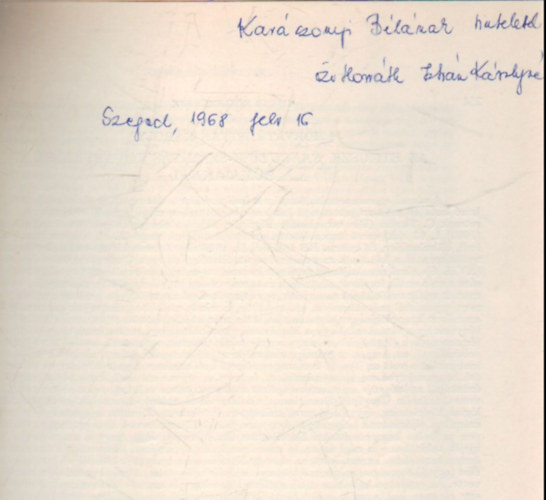 Karácsonyi Bélának tisztelettel
özv Horváth István Károlyné
Szeged, 1968 febr 16